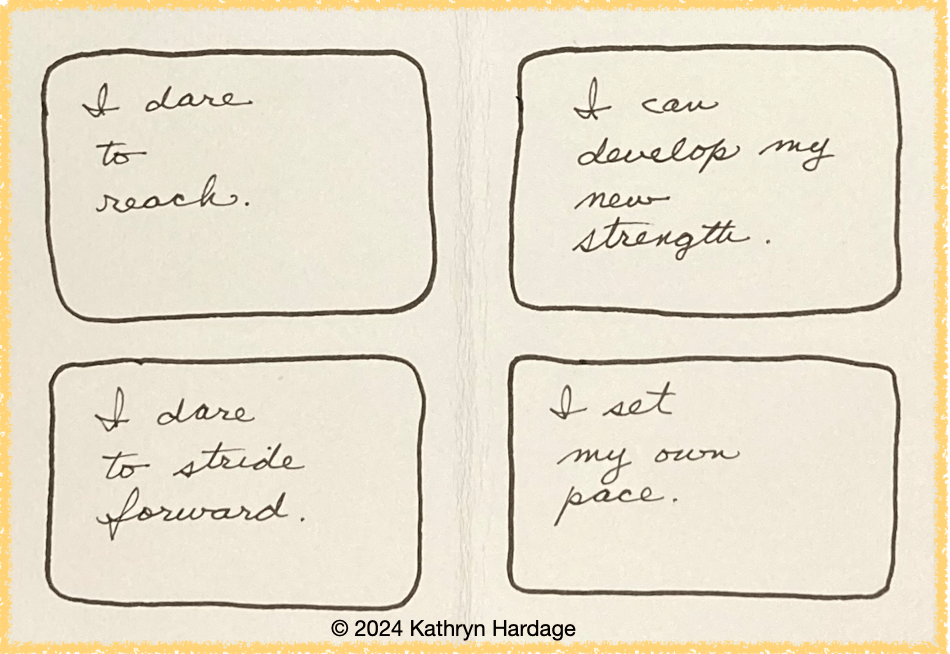 I dare
to
reach.
I can
develop my
new
strength.
I dare
to stride
forward.
I set
my own
pace.
© 2024 Kathryn Hardage